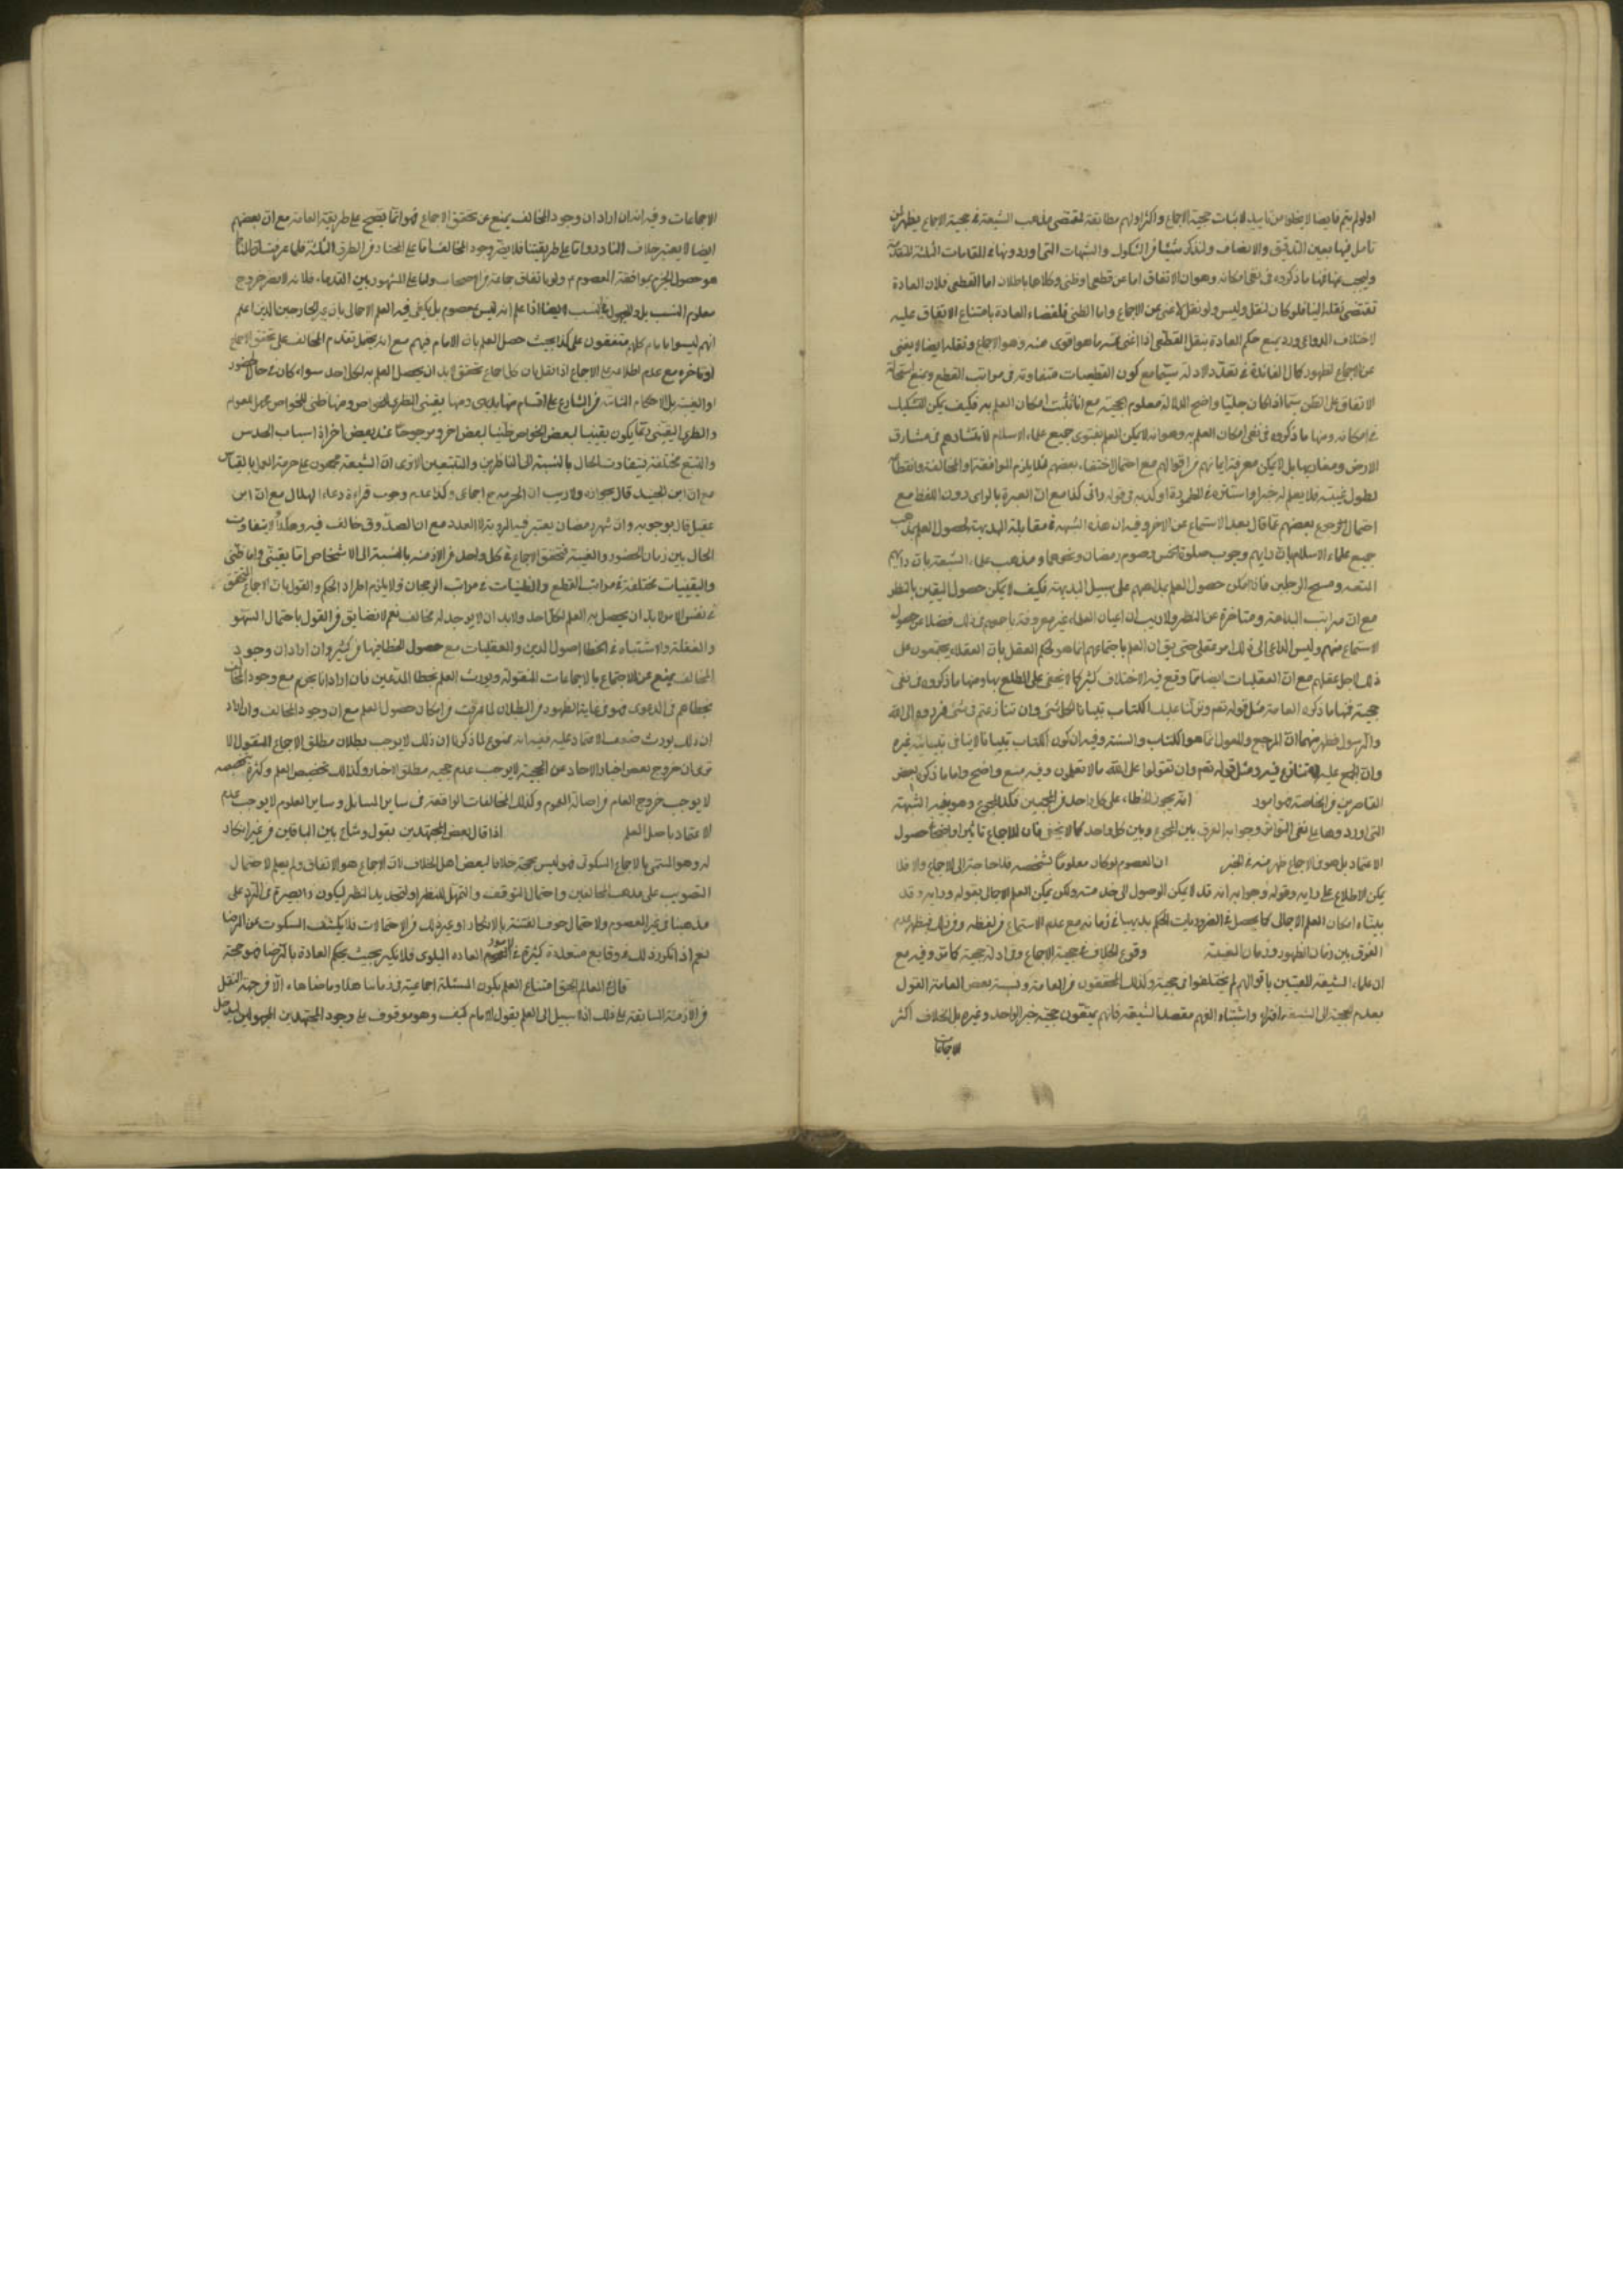 اولم يتم فايضا لا يخلو من تاييد لاثبات حجية الاجماع واكثر ادلهم مطابقة لمقتضى مذهب الشيعة في حجية الاجماع يظهر لمن
تامل فيها بعين التدقيق والانصاف ولنذكر شيئا من الشكوك والشبهات التى اوردوها في المقامات الثلثة المتقدمة
ونجيب عنها فمنها ما ذكروه فى نفى امكانه وهو ان الاتفاق اما عن قطعى او ظنى وكلاهما باطلان اما القطعى فلان العادة
تقتضى نقله الينا فلو كان لنقل وليس ولو نقل لاغنى عن الاجماع واما الظنى فلقضاء العادة بامتناع الاتفاق عليه
لاختلاف الدواعى ورد بمنع حكم العادة بنقل القطعى اذا اغنى عنه ما هو اقوى منه وهو الاجماع ونقله ايضا لا يغنى
عن الاجماع لظهور كمال الفائدة في تعدد الادلة سيما مع كون القطعيات متفاوتة فى مراتب القطع ومنع استحالة
الاتفاق على الظن سيما اذا كان جليا واضح الدلالة معلوم الحجية مع انا نثبت امكان العلم به فكيف يمكن التشكيك
في امكانه ومنها ما ذكروه فى نفى امكان العلم به وهو انه لا يمكن العلم بفتوى جميع علماء الاسلام لانتشارهم فى مشارق
الارض ومغاربها بل لا يمكن معرفة اعيانهم فى اقوالهم مع احتمال اختفاء بعضهم لئلا يلزم الموافقة او المخالفة وانقطاعه
لطول غيبته فلا يعلم له خبر او استاره في المطمورة او كذبه فى قوله رائى كذا مع ان العبرة بالراى دون اللفظ مع
احتمال رجوع بعضهم عما قال بعد الاستماع عن الاخر وفيه ان هذه الشبهة في مقابلة البديهة لحصول العلم بمذهب
جميع علماء الاسلام بان رايهم وجوب صلوة الخمس وصوم رمضان ونحوهما ومذهب علماء الشيعة بان رايهم
المتعه ومسح الرجلين فاذا امكن حصول العلم بمذهبهم على سبيل البديهة فكيف لا يمكن حصول اليقين بالنظر
مع ان مراتب البداهة ومتاخرة عن النظر ولا ريب ان اعيان العلماء غير معروفة باجمعهم فى ذلك فضلا عن حصول
الاستماع منهم وليس الداعى الى ذلك امر عقلى حتى يق ان العلم باجتماعهم انما هو لحكم العقل بان العقلاء يجتمعون على
ذلك لاجل عقلهم مع ان العقليات ايضا مما وقع فيه الاختلاف كثيرا كما لا يخفى على المطلع بها ومنها ما ذكروه فى نفى
حجيته فمنها ما ذكره العامة مثل قوله تعم ونزلنا عليك الكتاب تبيانا لكل شئ وان تنازعتم فى شئ فردوه الى الله
والرسول فظهر منهما ان المرجع والمعول انما هو الكتاب والسنة وفيه ان كون الكتاب تبيانا لا ينافى تبيانية غيره
وان المجمع عليه لا تنازع فيه ومثل قوله تعم وان تقولوا على الله ما لا تعلمون وفيه منع واضح واما ما ذكره بعض
القاصرين من الخاصة فهو امور انه يجوز الخطاء على كل واحد من المجمعين فكذا المجموع وهو بعينه الشبهة
التى اوردوها على نفى التواتر وجوابه الفرق بين المجموع وبين كل واحد كما لا يخفى فان للاجماع تاثيرا واضحا في حصول
الاعتماد بل هو فى الاجماع اظهر منه في الخبر ان المعصوم لو كان معلوما بشخصه فلا حاجة الى الاجماع والا فلا
يمكن الاطلاع على رايه وقوله وجوابه انه قد لا يمكن الوصول الى خدمته ولكن يمكن العلم الاجمالى بقوله ورايه وقد
بينا امكان العلم الاجمالى كما يحصل في الضروريات الحكم بديهيا في زمانه مع عدم الاستماع من لفظه ومن ذلك فيظهر عدم
الفرق بين زمان الظهور وزمان الغيبة وقوع الخلاف في حجية الاجماع وفى ادلة حجيته كما مر وفيه مع
ان علماء الشيعة المعتنين باقوالهم لم يختلفوا فى حجيته وكذلك المحققون من العامة ونسبة بعض العامة القول
بعدم الحجية الى الشيعة افتراء واشتباه لفهم مقصد الشيعة فانهم يمنعون حجية خبر الواحد وغيره بل الخلاف اكثر
الاجماعات
الاجماعات وفيه انه ان اراد ان وجود المخالف يمنع عن تحقق الاجماع فهو انما يصح على طريقة العامة مع ان بعضهم
ايضا لا يعتبر خلاف النادر واما على طريقتنا فلا يضر وجود المخالف اما على المختار من الطرق الثلثة فلما عرفت ان المناط
هو حصول الجزم بموافقة المعصوم م ولو باتفاق جماعة من الاصحاب واما على المشهور بين القدماء فلانه لا يضر خروج
معلوم النسب بل ولا مجهول النسب ايضا اذا علم انه ليس بمعصوم بل يكفى فيه العلم الاجمالى بان غير الخارجين الذين اعلم
انهم ليسوا بامام كلهم متفقون على كذا بحيث حصل العلم بان الامام فيهم مع انه يحتمل تقدم المخالف على تحقق الاجماع
او تاخره مع عدم اطلاعه على الاجماع اذا نقل بان كل اجماع تحقق لا بد ان يحصل العلم به لكل احد سواء كان في حال الحضور
او الغيبة بل الاحكام الثابتة من الشارع على اقسام منها بديهى ومنها يقينى النظرى للخواص ومنها ظنى للخواص مجمل للعوام
والنظرى اليقينى ربما يكون يقينيا لبعض الخواص ظنيا لبعض اخر ومرجوحا عند بعض اخر اذ اسباب الحدس
والتتبع مختلفة فيتفاوت الحال بالنسبة الى الناظرين والمتتبعين الا ترى ان الشيعة مجمعون على حرمة العمل بالقياس
مع ان ابن الجنيد قال بجوازه ولا ريب ان الحرمة ح اجماعى وكذا عدم وجوب قراءة دعاء الهلال مع ان ابن
عقيل قال بوجوبه وان شهر رمضان يعتبر فيه الرؤية لا العدد مع ان الصدوق خالف فيه وهكذا ولا يتفاوت
الحال بين زمان الحضور والغيبة فتحقق الاجماع في كل واحد من الازمنة بالنسبة الى الاشخاص اما يقينى واما ظنى
واليقينيات مختلفة في مراتب القطع والظنيات في مراتب الرجحان فلا يلزم اطراد الحكم والقول بان الاجماع المتحقق
في نفس الامر لا بد ان يحصل به العلم لكل احد ولا بد ان لا يوجد له مخالف نعم لا نضايق من القول باحتمال السهو
والغفلة والاشتباه في الخطا اصول الدين والعقليات مع حصول الخطا فيها من كثير وان اراد ان وجود
المخالف يمنع عن الاجتماع بالاجماعات المنقولة ويورث العلم بخطا المدعين فان اراد انا نجزم مع وجود المخالف
بخطاهم فى الدعوى فهو فى غاية الظهور من البطلان لما عرفت من امكان حصول العلم مع ان وجود المخالف وان اراد
ان ذلك يورث ضعف الاعتماد عليه ففيه انه ممنوع لما ذكرنا ان ذلك لا يوجب بطلان مطلق الاجماع المنقول الا
ترى ان خروج بعض اخبار الاحاد عن الحجية لا يوجب عدم حجية مطلق الاخبار وكذلك تخصيص العلم وكثرة تخصيصه
لا يوجب خروج العام من اصالة العموم وكذلك المخالفات الواقعة فى ساير المسائل وساير العلوم لا يوجب عدم
الاعتماد باصل العلم اذا قال بعض المجتهدين بقول وشاع بين الباقين من غير انكار
له وهو المسمى بالاجماع السكوتى فهو ليس بحجة خلافا لبعض اهل الخلاف لان الاجماع هو الاتفاق ولم يعلم لاحتمال
التصويب على مذهب المخالفين واحتمال التوقف والتمهل للنظر او لتجديد النظر ليكون ذا بصيرة فى الرد على
مذهبنا فى غير المعصوم ولاحتمال خوف الفتنة بالانكار او غير ذلك من الاحتمالات فلا يكشف السكوت عن الرضا
نعم اذا تكرر ذلك فى وقايع متعددة كثيرة في الامور العامة البلوى فلا نكير بحيث يحكم العادة بالرضا فهو حجة
قال في المعالم الحق امتناع العلم بكون المسئلة اجماعية فى زماننا هذا وما ضاهاه الا من جهة النقل
من الازمنة السابقة على ذلك اذ لا سبيل الى العلم بقول الامام كيف وهو موقوف على وجود المجتهدين المجهولين ليدخل